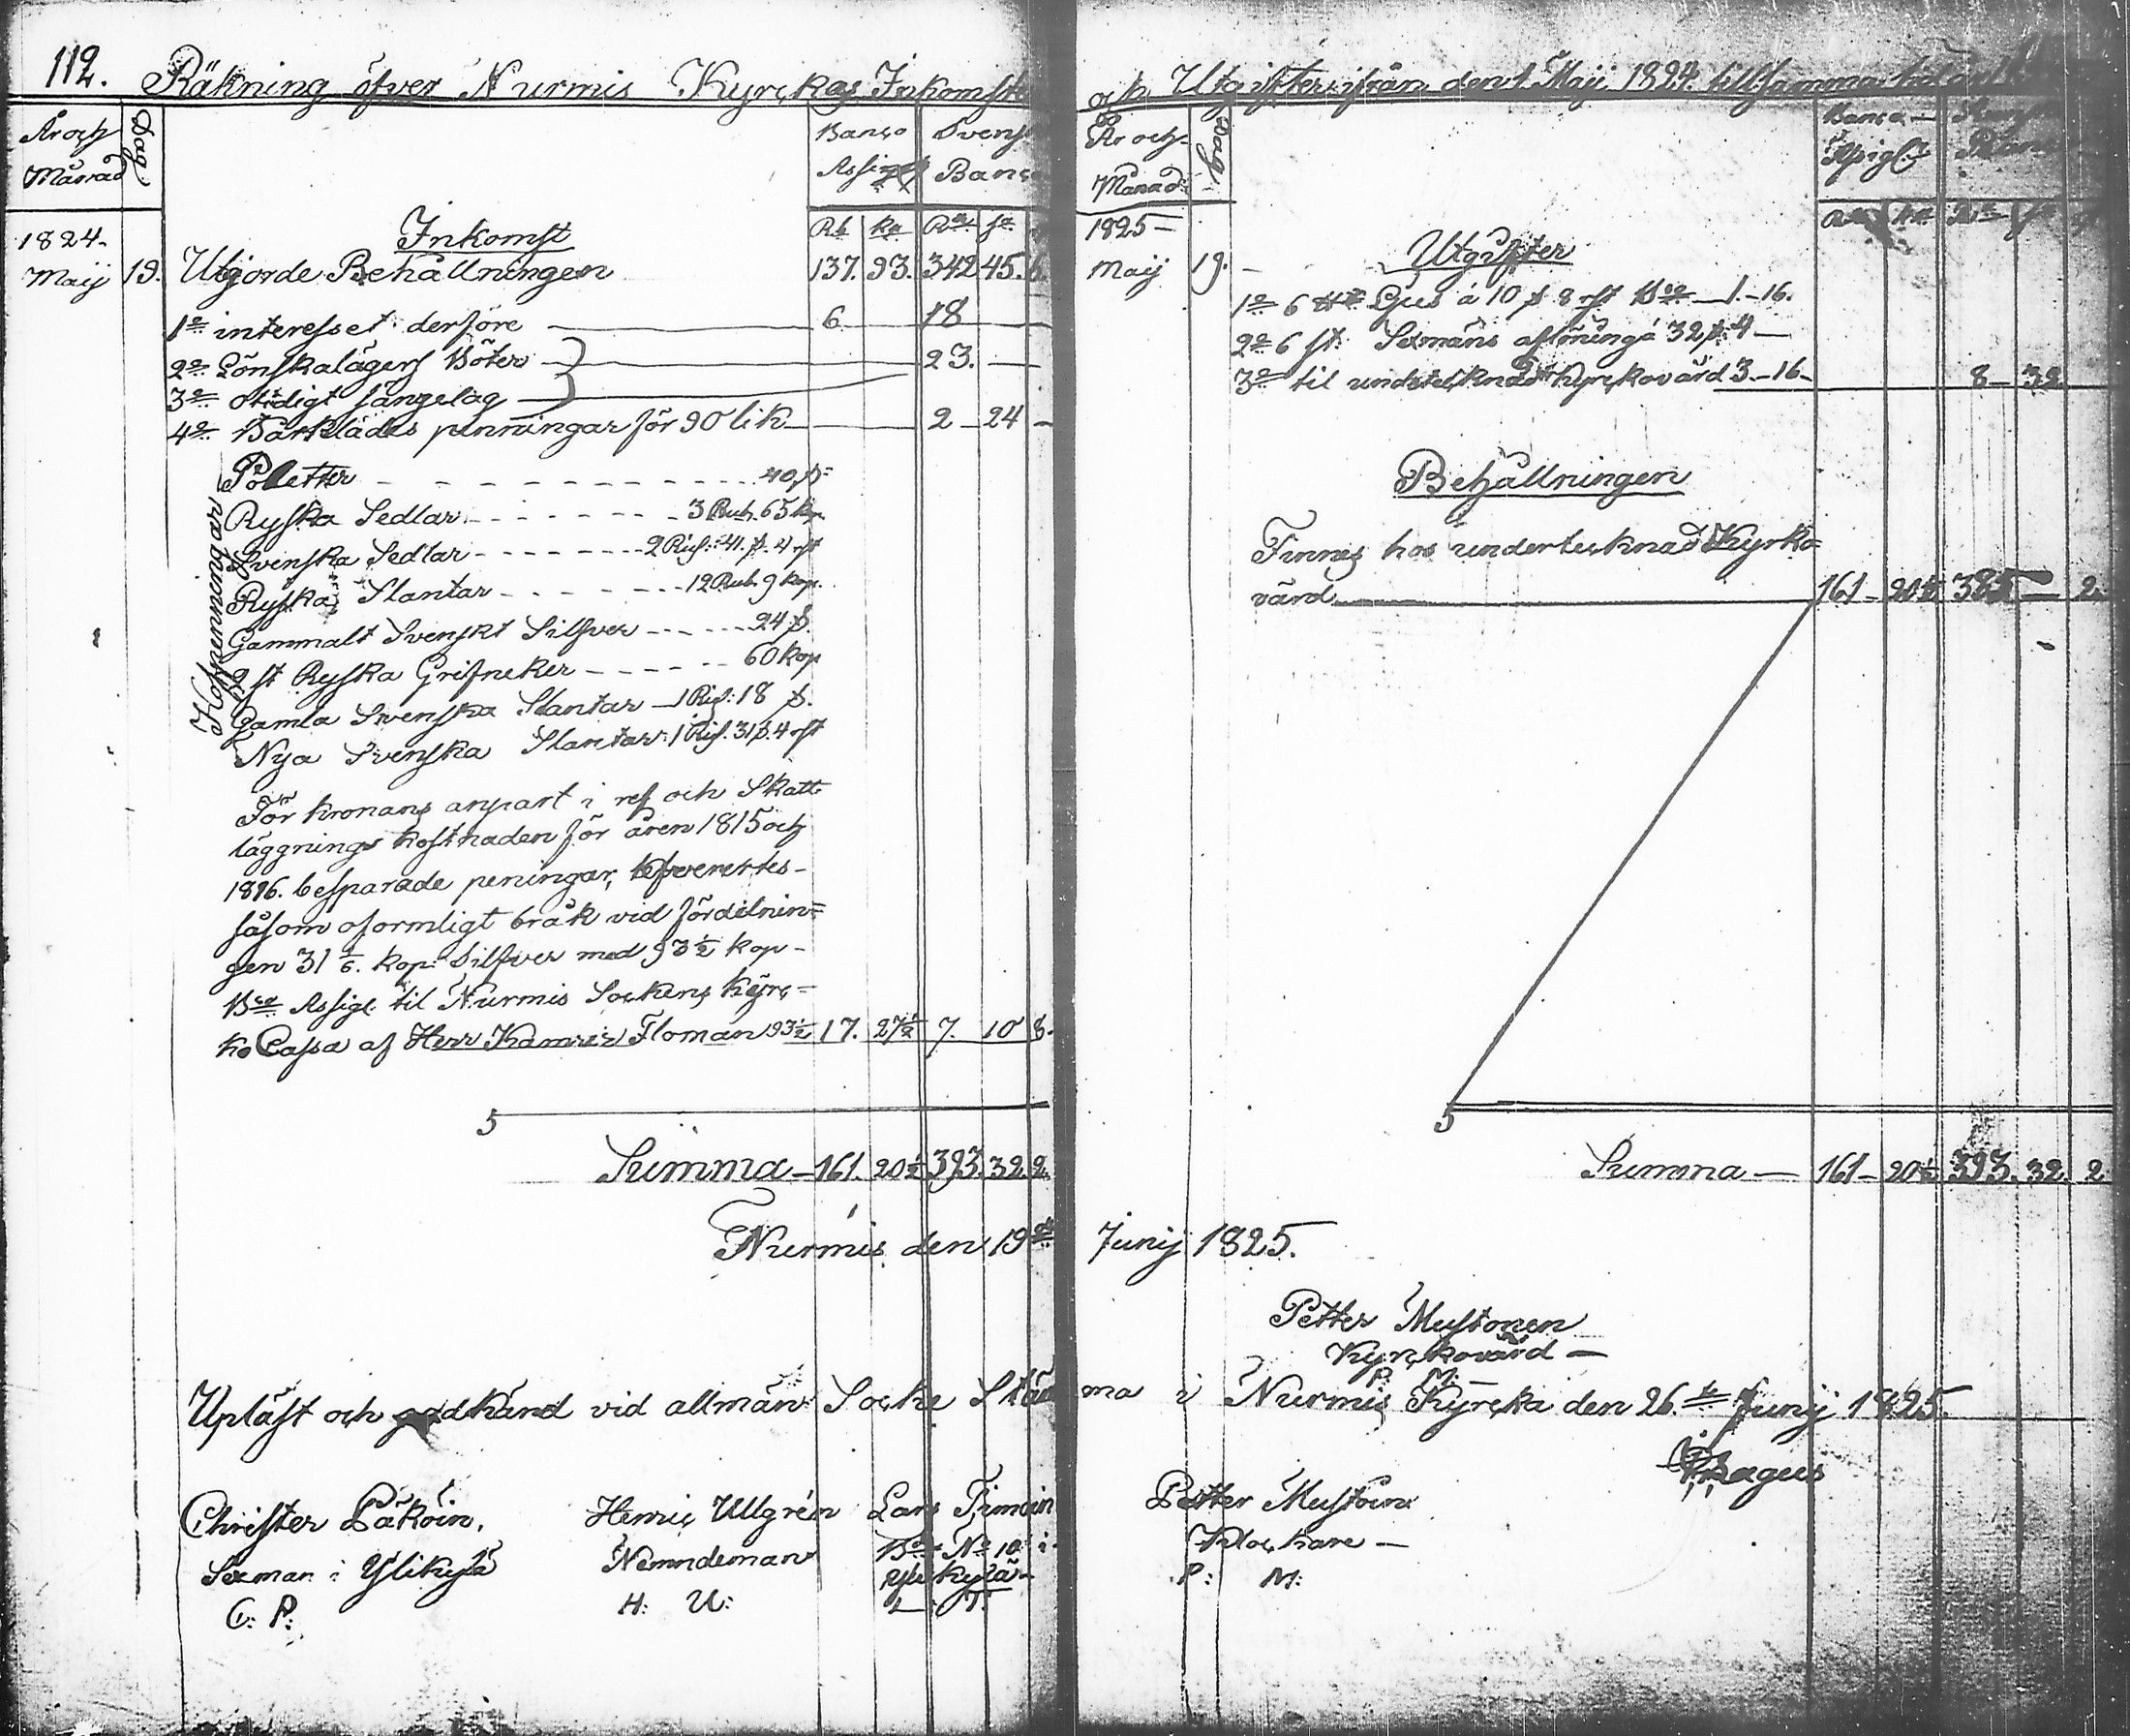 112. Räkning öfver Nurmis Kyrckas Inkomste
År och Månad
Dag
Banco Assign
Svensk Banco
Rb ko Rd sk
Inkomst
1824.
Maij 19. Utgjorde Behållningen 137. 93. 342 45. 6.
1o interesset derföre 6 18
2o Lönskalägers Böter 23.
3o otidigt sängelag
4o Bårklädes penningar för 90 lik 2 24
Håfpenningar
Poletter 40 s
Ryska Sedlar 3 Rub. 65 kop.
Svenska Sedlar 2 Rig: 41. s. 4 rst
Ryska Slantar 12 Rub. 9 kop.
Gammalt Svenskt Silfver 24 s.
2 st Ryska Grifneker 60 kop
Gamla Svenska Slantar 1 Rig: 18 s.
Nya Svenska Slantar 1 Rig. 31 s. 4 rst
För kronans anpart i ref och Skatt
läggnings kostnaden för åren 1815 och
1816. besparade peningar,
såsom oformligt bråk vid fördelnin=
gen 31 1/6. kop: Silfver med 93 1/2 kop-
Bco Assig. til Nurmis Sockens Kyrc=
ko Cassa af Herr Kamrer Floman 93 1/2 17. 27 1/2 7. 10 8.
Summa 161. 20 1/2 393. 32. 2.
och Utgifter ifrån den 1 Maij 1824. till samma tid
År och Månad
Dag
Banco
1825
Maij 19.
Utgifter
1o 6 Ljus á 10 s 8 rst Bco 1.-16.
2o 6 st. Sexmäns aflöning á 32 s. 4
3o til undertecknad Kyrckovärd 3-16- 8 32
Behållningen
Finnes hos undertecknad Kyrko=
värd 161 20 1/2 385 2.
Summa 161 20 1/2 393. 32. 2
Nurmis den 19de Junij 1825.
Petter Mustonen
Kyrckovärd
P. M.
Upläst och godkänd vid allmän Socke Stäm
ma i Nurmis Kyrcka den 26te Junij 1825.
Christer Päköin,
Sexman i Ylikylä
C: P:
Henric Ullgrén
Nemndeman
H: U:
Lars Timoin
No 10 i
Ylikylä
L. T.
Petter Mustoin
Klockare
P: M: